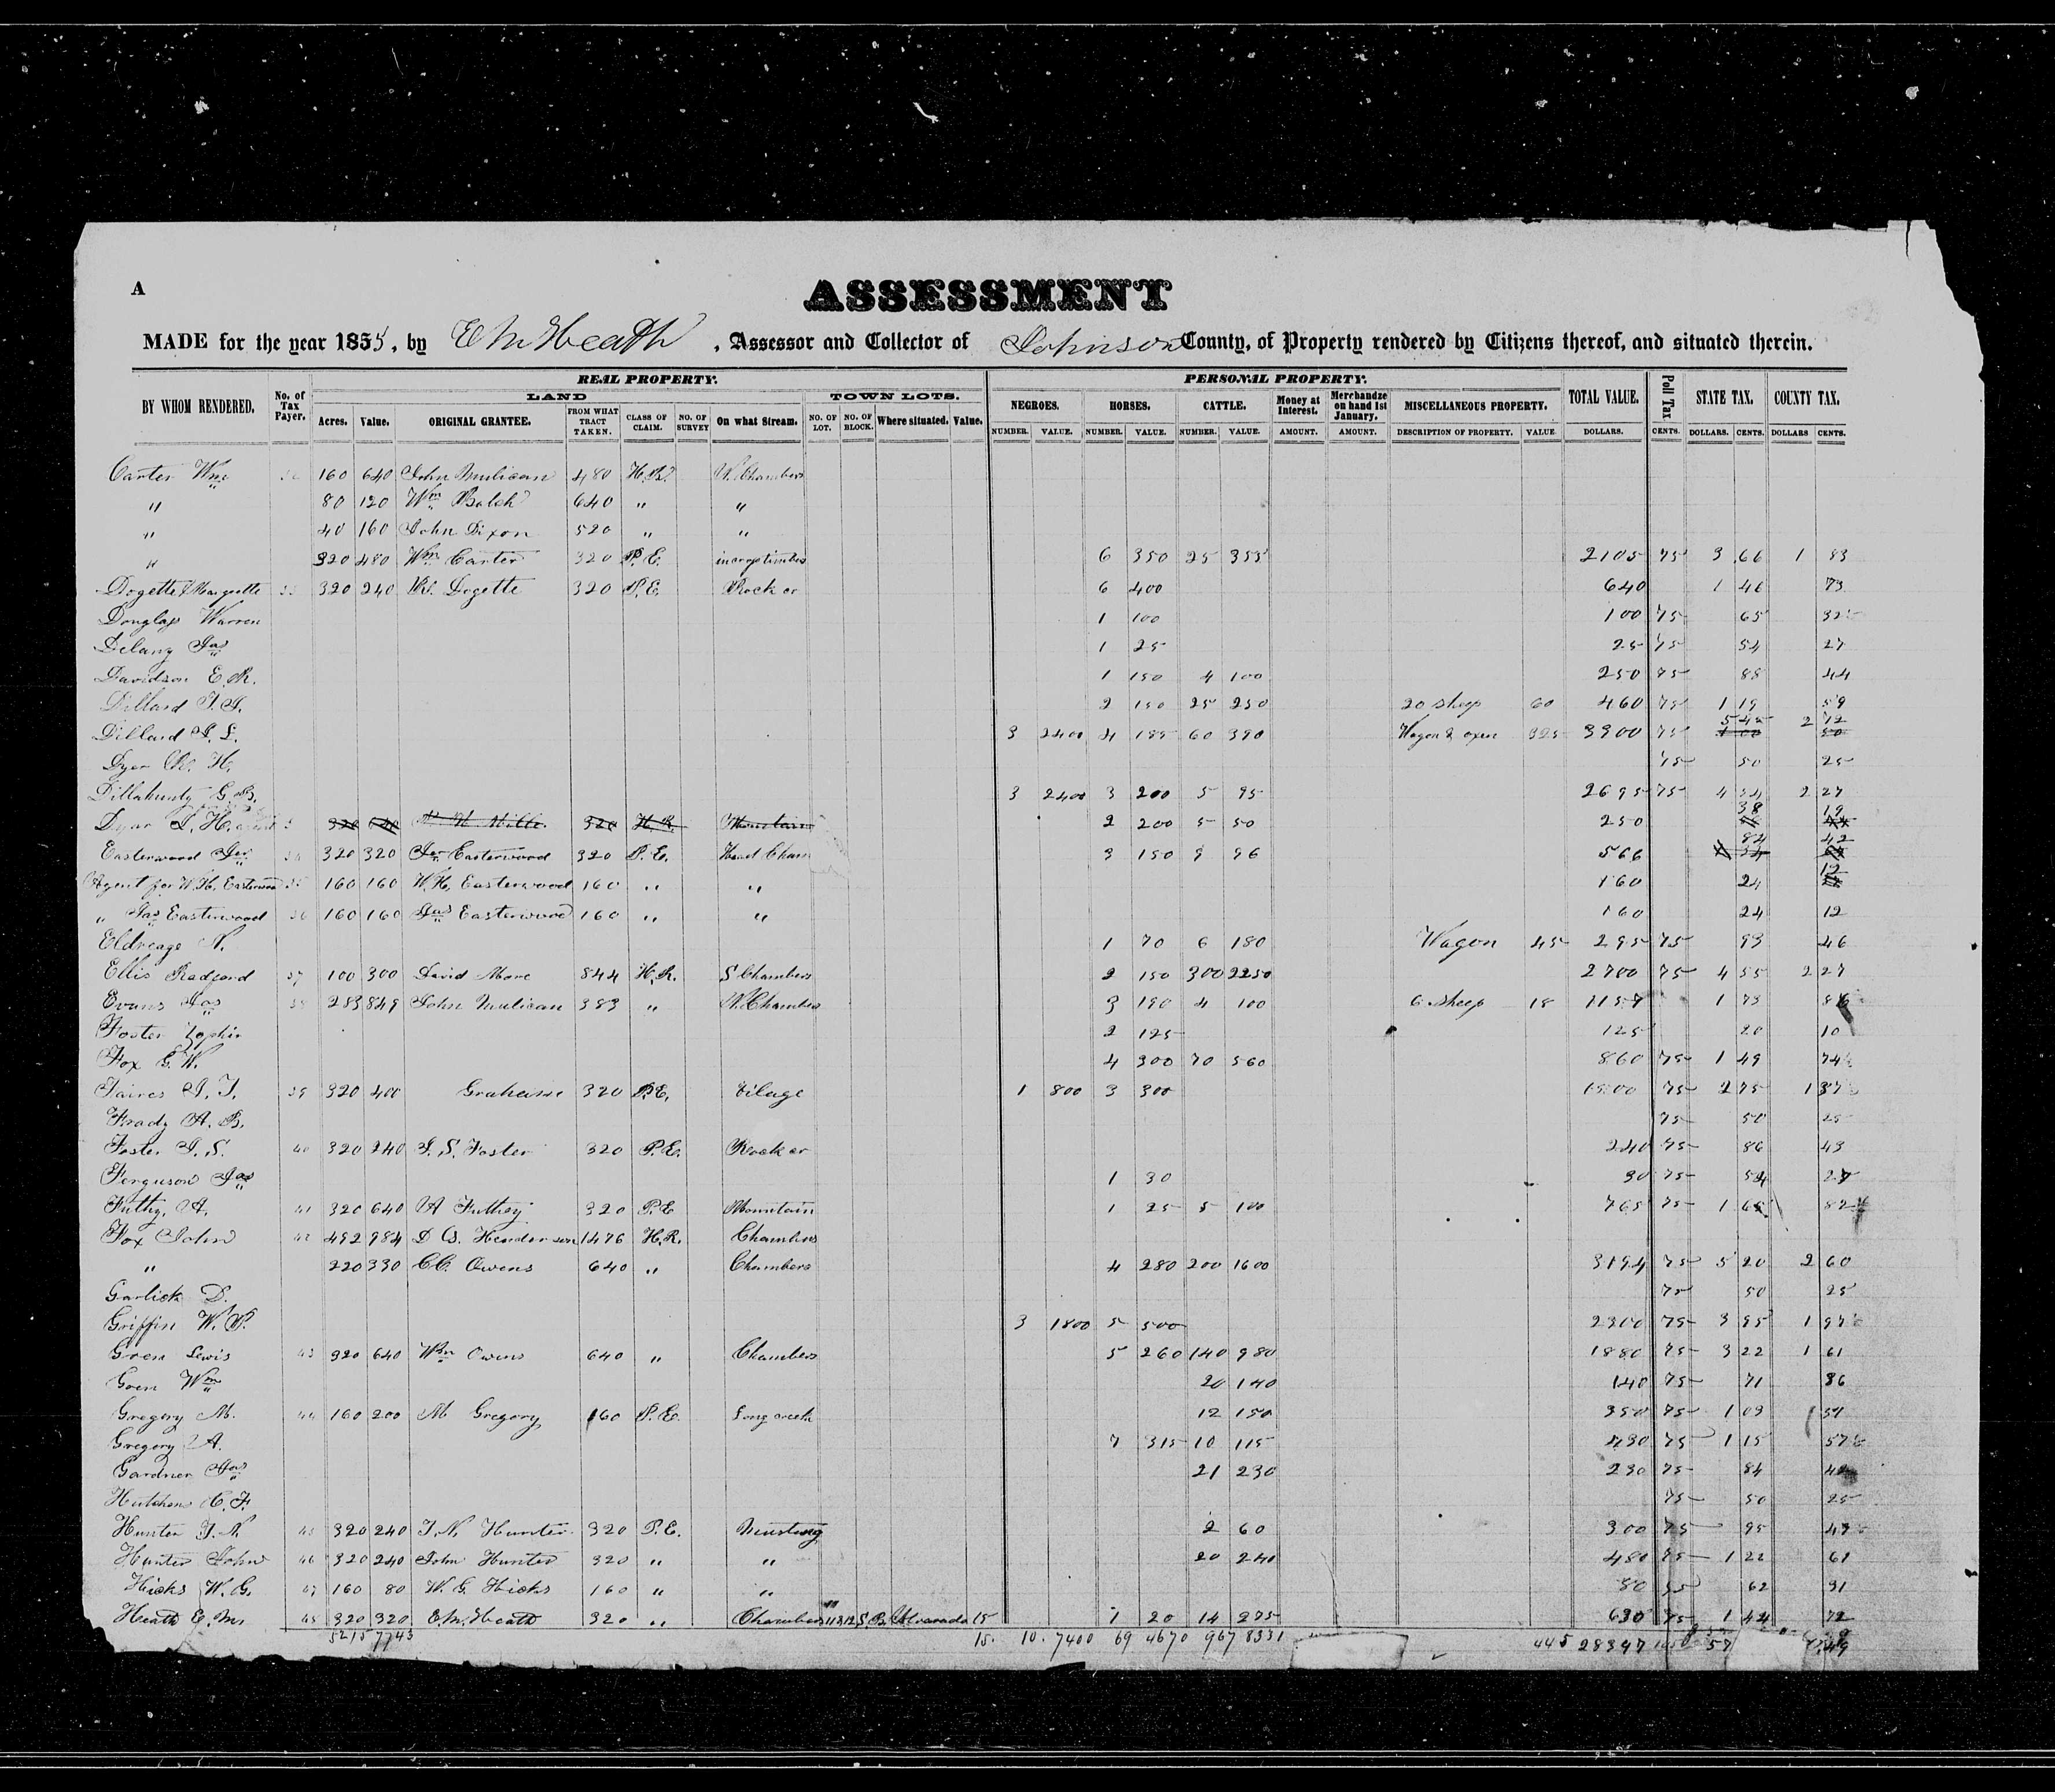 A
ASSESSMENT
MADE for the year 1855, by E M Heath, Assessor and Collector of Johnson County, of Property rendered by Citizens thereof, and situated therein.
REAL PROPERTY. PERSONAL PROPERTY.
BY WHOM RENDERED. No. of Tax Payer. LAND TOWN LOTS. NEGROES. HORSES. CATTLE. Money at Interest. Merchandze on hand 1st January. MISCELLANEOUS PROPERTY. TOTAL VALUE. Poll Tax STATE TAX. COUNTY TAX.
Acres. Value. ORIGINAL GRANTEE. FROM WHAT TRACT TAKEN. CLASS OF CLAIM. NO. OF SURVEY On what Stream. NO. OF LOT. NO. OF BLOCK. Where situated. Value. NUMBER. VALUE. NUMBER. VALUE. NUMBER. VALUE. AMOUNT. AMOUNT. DESCRIPTION OF PROPERTY. VALUE. DOLLARS. CENTS. DOLLARS. CENTS. DOLLARS CENTS.
Carter Wm 160 640 John Mulican 480 H.R. N. Chambers
" 80 120 Wm Balch 640 " "
" 40 160 John Dixon 520 " "
" 320 480 Wm Carter 320 P.E. 6 350 25 355 2105 75 3 66 1 83
Dogette 33 320 240 Dogette 320 P.E. Rock cr 6 400 640 1 46 73
Douglass Warren 1 100 100 75 65 32
Delany Jas 1 25 25 75 54 27
Davidson E. R. 1 150 4 100 250 75 88 44
Dillard T. J. 2 150 25 250 20 sheep 60 460 75 1 19 59
Dillard J. L. 3 2400 4 185 60 390 Wagon & oxen 325 3300 75 5 45 2 72
Dyer H. 75 50 25
Dillahunty G. B. 3 2400 3 200 5 95 2695 75 4 54 2 27
Dyar L. H. 320 Mills 320 H.R. Mountain 2 200 5 50 250 38 19
Easterwood Jas 34 320 320 Jas Easterwood 320 P.E. Head Cham 3 150 9 96 566 84 42
Agent for W. H. Easterwood 35 160 160 W. H. Easterwood 160 " " 160 24 12
" Jas Easterwood 36 160 160 Jas Easterwood 160 " " 160 24 12
Eldreage N. 1 70 6 180 Wagon 45 295 75 93 46
Ellis Radford 37 100 300 David More 844 H.R. S Chambers 2 150 300 2250 2700 75 4 55 2 27
Evans Jas 38 283 849 John Mulican 383 " N. Chambes 3 190 4 100 6 sheep 18 1157 1 73 86
Foster 2 125 125 20 10
Fox G. W. 4 300 70 560 860 75 1 49 74
Faires J. T. 39 320 400 Grahame 320 P.E. Vilage 1 800 3 300 1500 75 2 75 1 37
Frady A. B. 75 50 25
Foster J. S. 40 320 240 J. S. Foster 320 P.E. Rock cr 240 75 86 43
Ferguson Jas 1 30 30 75 54 27
Futhy, A. 41 320 640 A Futhey 320 P.E Mountain 1 25 5 100 765 75 1 65 82
Fox John 42 492 984 D. Henderson 1476 H.R. Chambers
" 220 330 C.C. Owens 640 " Chambers 4 280 200 1600 3194 75 5 20 2 60
Garlick D. 75 50 25
Griffin W. P. 3 1800 5 500 2300 75 3 95 1 97
Green Lewis 43 320 640 Wm Owens 640 " Chambers 5 260 140 980 1880 75 3 22 1 61
Goen Wm 20 140 140 75 71 36
Gregory M. 44 160 200 M Gregory 160 P.E. Long creek 12 150 350 75 1 03 51
Gregory A. 7 315 10 115 430 75 1 15 57
Gardner Jas 21 230 230 75 84 42
Hutchens C. F. 75 50 25
Hunter J. N. 45 320 240 J. N. Hunter 320 P.E. Mustang 2 60 300 75 95 47
Hunter John 46 320 240 John Hunter 320 " " 20 240 480 75 1 22 61
Hicks W. G. 47 160 80 W. G. Hicks 160 " " 80 75 62 31
Heath E. M. 48 320 320 E. M. Heath 320 " Chambers Alvarado 15 1 20 14 275 630 75 1 44 72
5215 7743 15. 10. 7400 69 4670 967 8331 445 28347 57